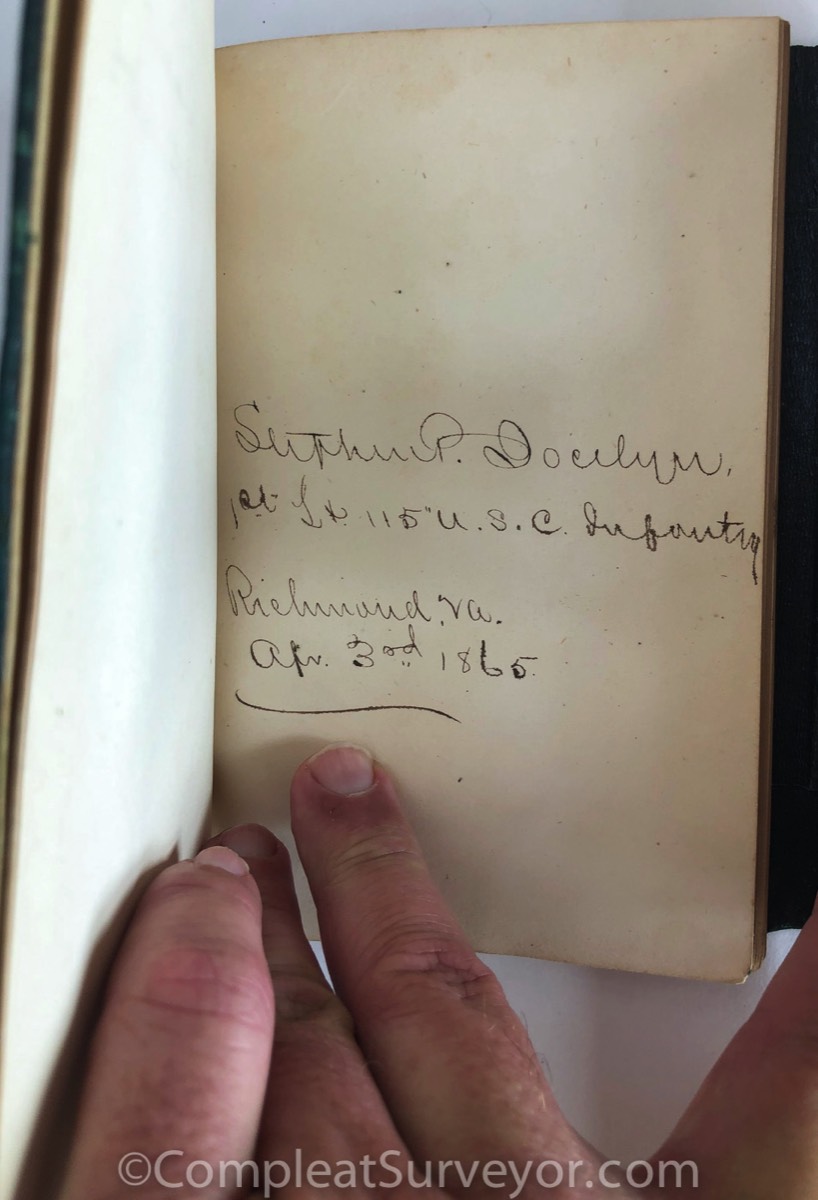 Stephen P. Jocelyn,
1st Lt 115" U.S.C. Infantry
Richmond, Va.
Apr. 3rd 1865
©CompleatSurveyor.com